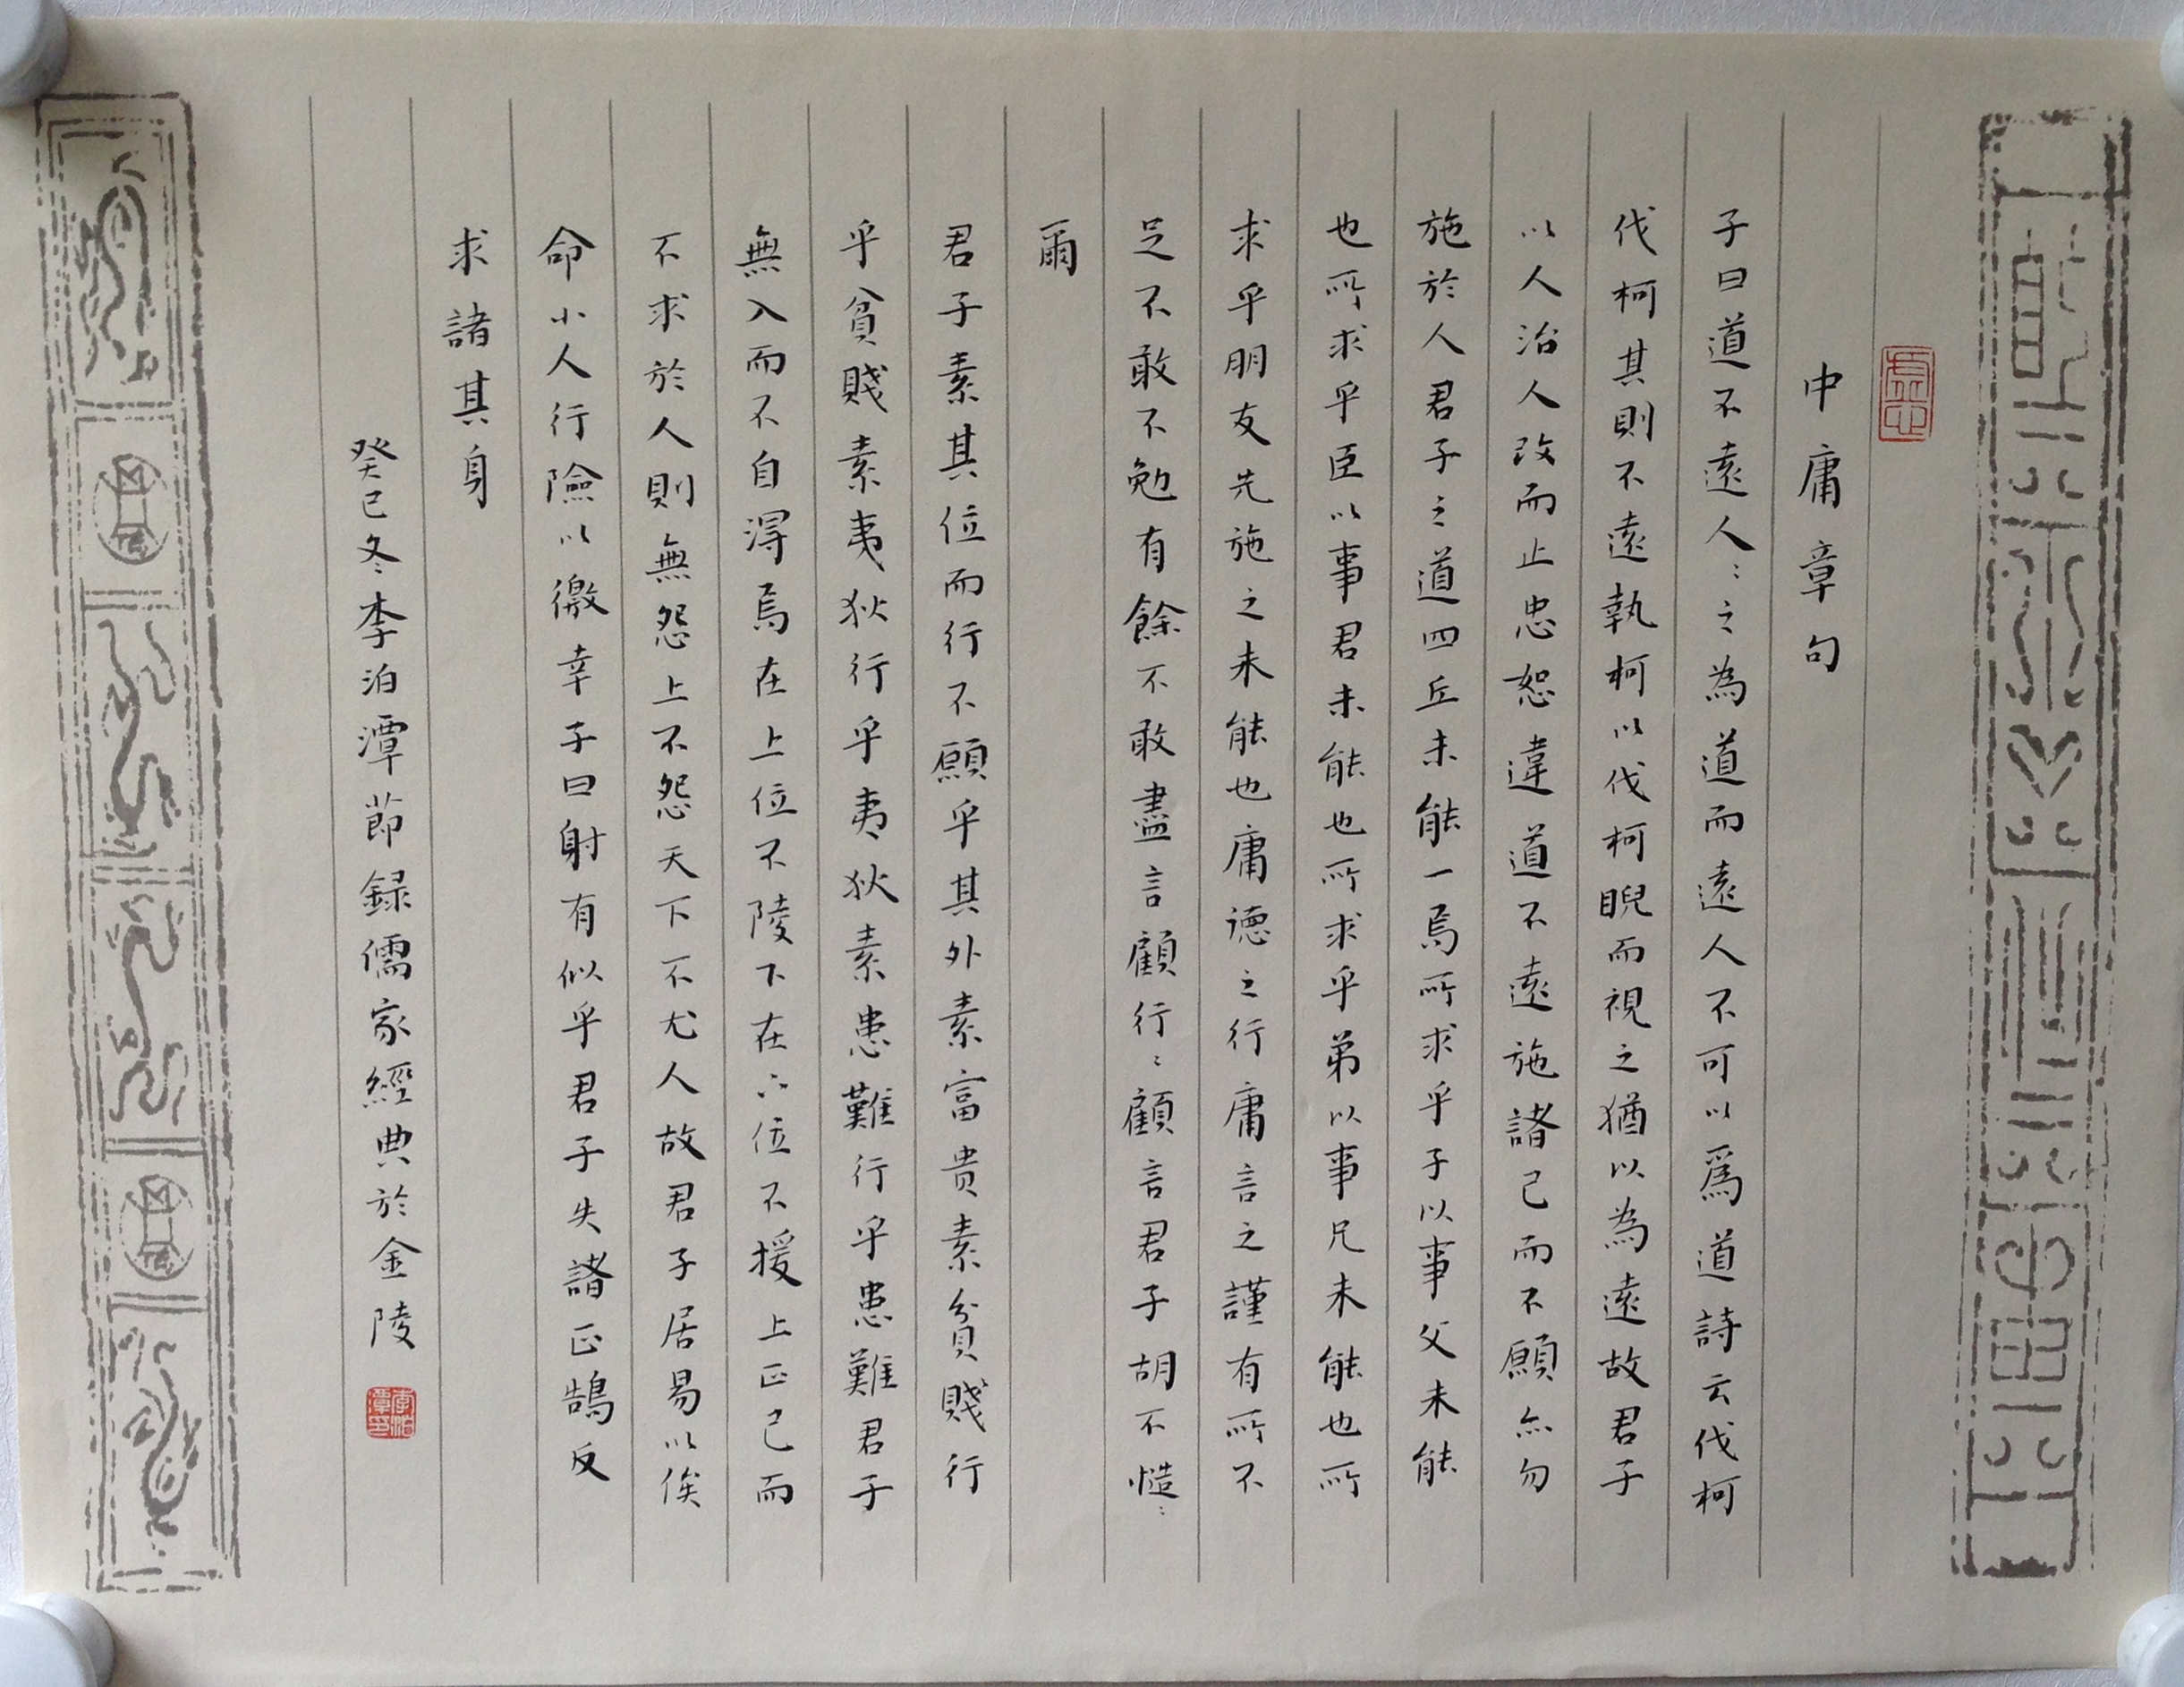 中庸章句
子曰道不遠人〻之為道而遠人不可以爲道詩云伐柯
伐柯其則不遠執柯以伐柯睨而視之猶以為遠故君子
以人治人改而止忠恕違道不遠施諸己而不願亦勿
施於人君子之道四丘未能一焉所求乎子以事父未能
也所求乎臣以事君未能也所求乎弟以事兄未能也所
求乎朋友先施之未能也庸德之行庸言之謹有所不
足不敢不勉有餘不敢盡言顧行〻顧言君子胡不慥〻
爾
君子素其位而行不願乎其外素富贵素貧賤行
乎貧賤素夷狄行乎夷狄素患難行乎患難君子
無入而不自淂焉在上位不陵下在下位不援上正己而
不求於人則無怨上不怨天下不尤人故君子居易以俟
命小人行險以徼幸子曰射有似乎君子失諸正鵠反
求諸其身
癸巳冬李泊潭節録儒家經典於金陵
李泊潭印